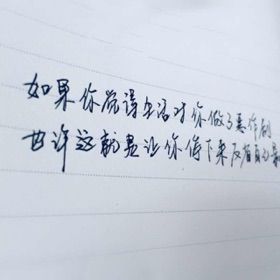 如果你觉得生活对你做了恶作剧
也许这就是让你停下来反省自己